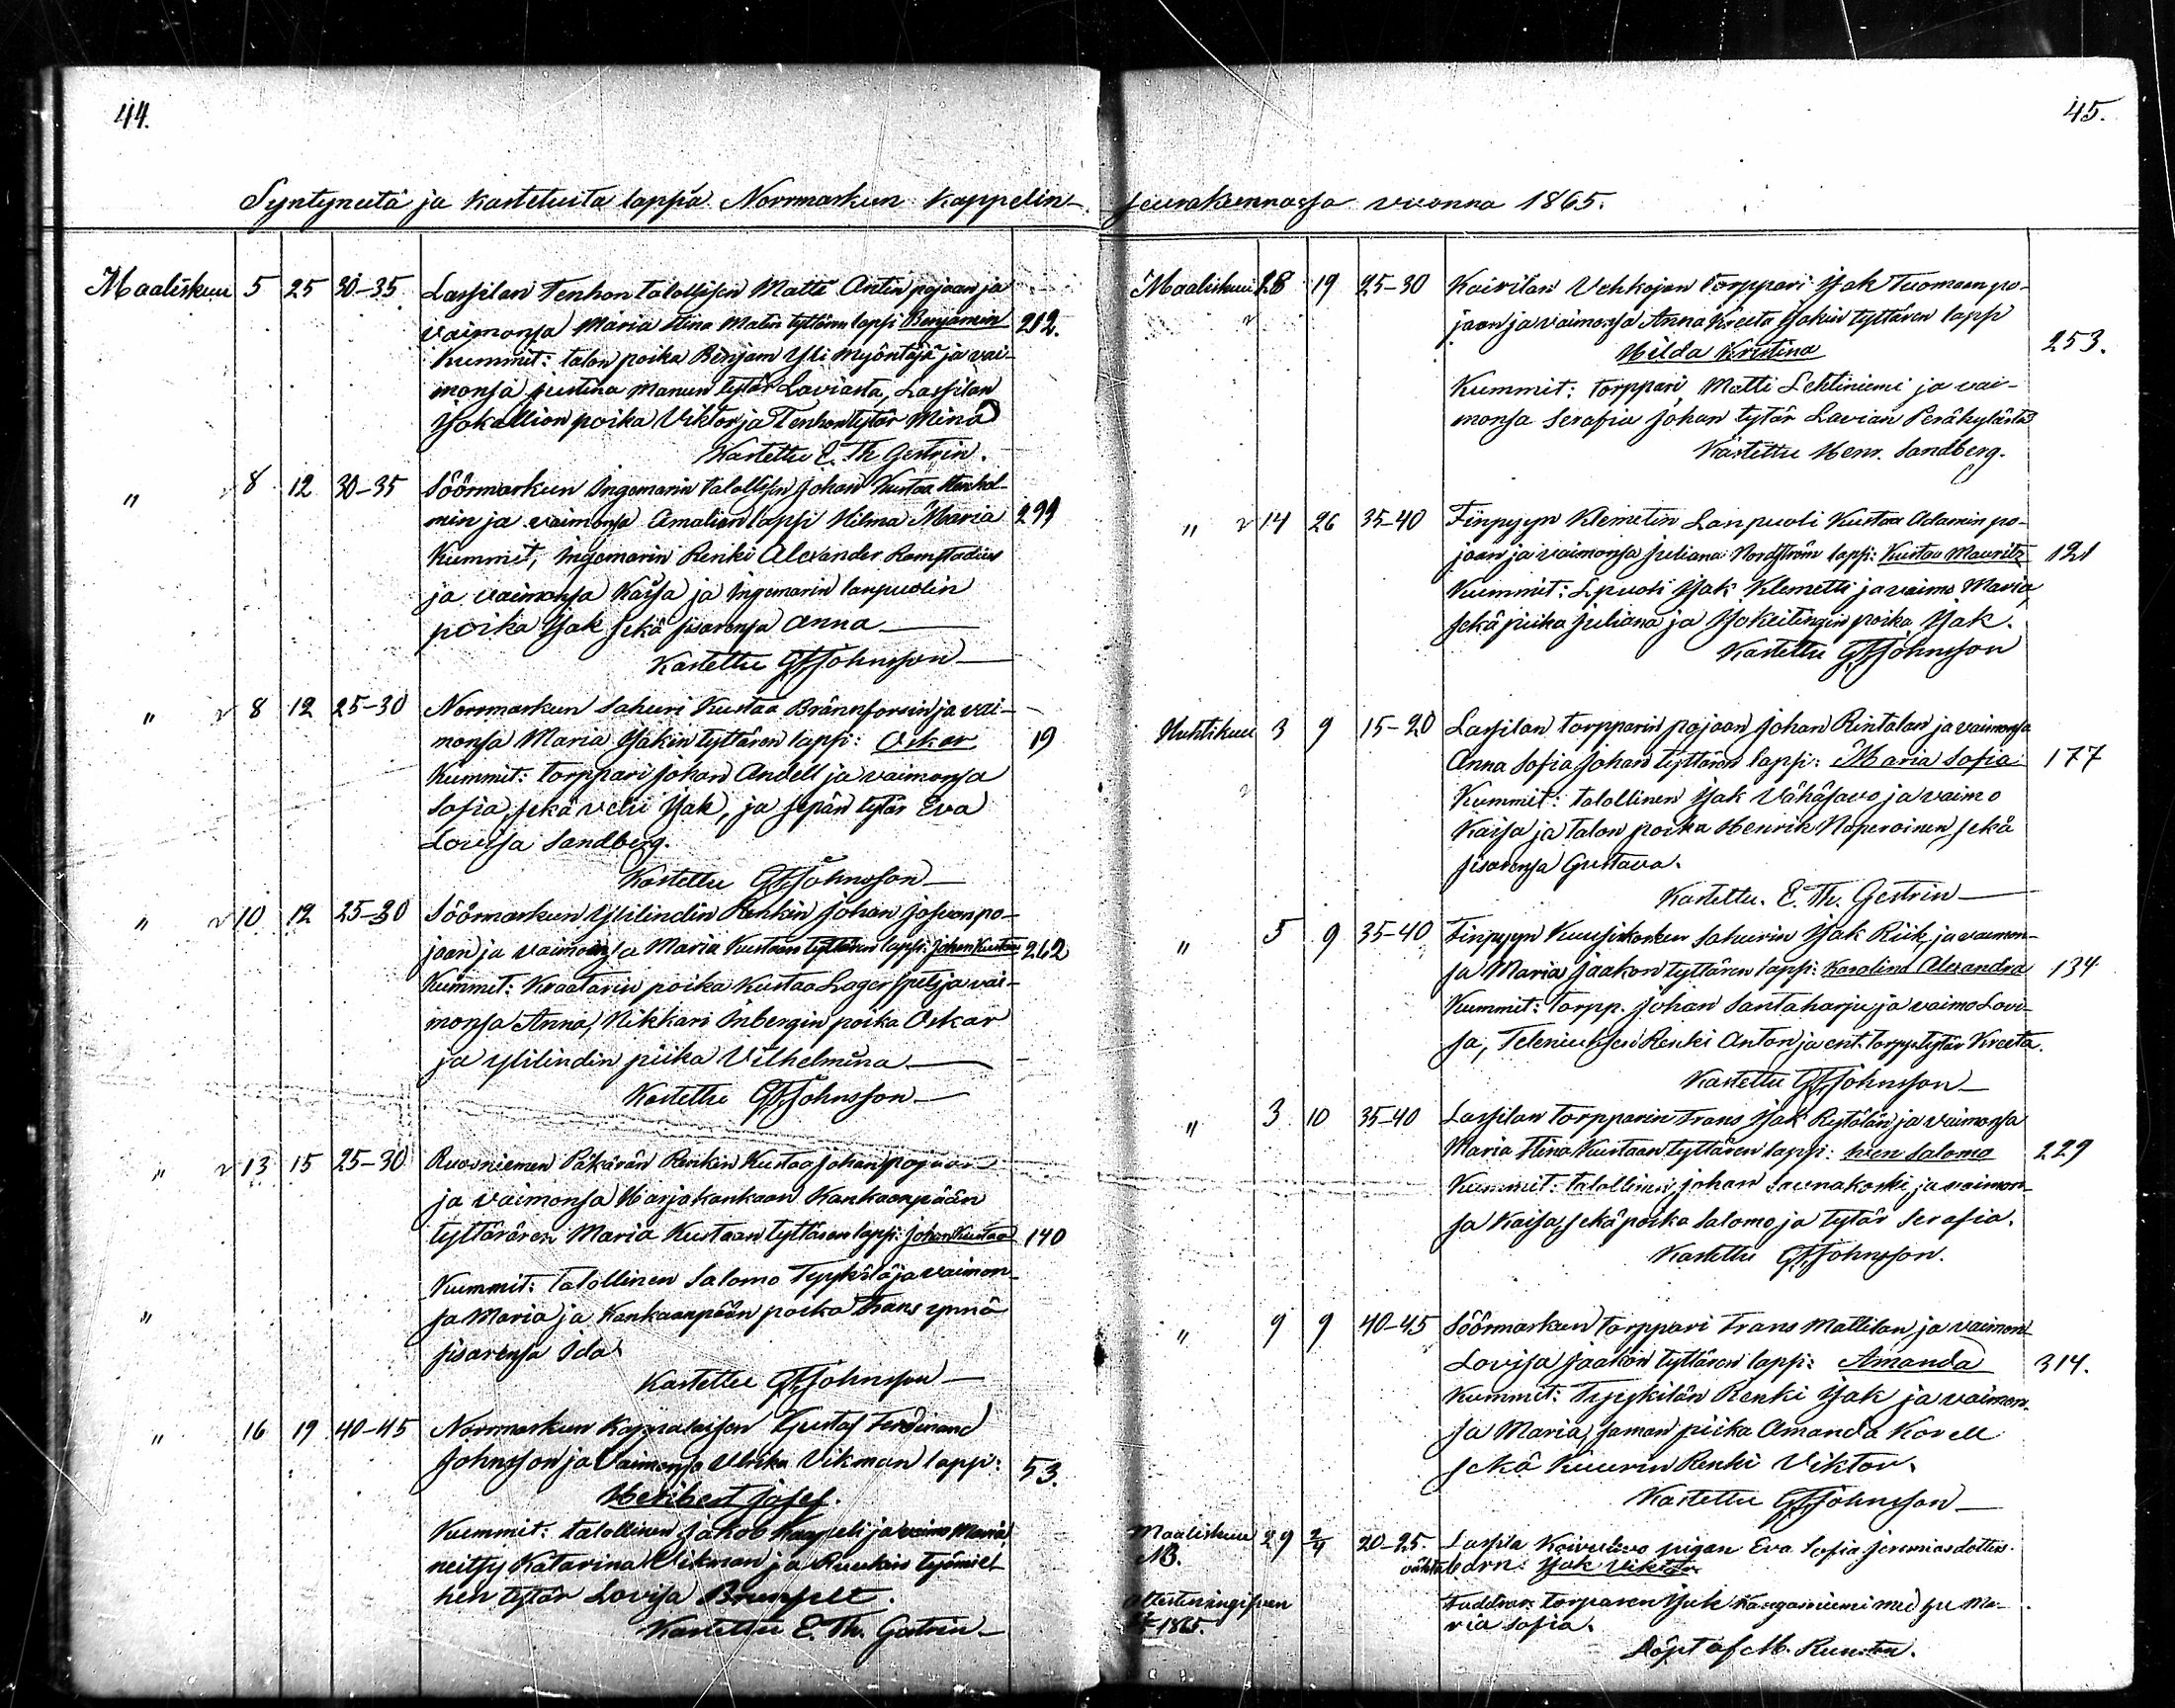 44.
Syntyneitä ja kastetuita lapsia Norrmarkun kappelin-
Maaliskuu 5 25 30-35 Lassilan Tenhon talollisen Matti Antin pojaan ja
vaimonsa Maria Stina Matin tyttären lapsi Benjamin 212.
Kummit: talon poika Benjam Yli Myöntäjä ja vai-
monsa Justina Manun tytär Laviasta, Lassilan
Isokallion poika Viktor ja Tenhon tytär Mina
Kastettu E. Th Gestrin.
" 8 12 30-35 Söörmarkun Ingemarin talollisen Johan Kustaa Stenhol-
min ja vaimonsa Amalian lapsi Hilma Maria 299
Kummit, Ingemarin Renki Alexander Ramstadius
ja vaimonsa Kaisa ja Ingemarin lanpuolin
poika Isak sekä sisarensa Anna
Kastettu GFJohnsson
" 8 12 25-30 Norrmarkun Sahuri Kustaa Brännforsin ja vai-
monsa Maria Isakin tyttären lapsi: Oskar 19
Kummit: torppari Johan Andell ja vaimonsa
Sofia, sekä veli Isak, ja sepän tytär Eva
Lovisa Sandberg.
Kastettu GFJohnsson
" 10 12 25-30 Söörmarkun Ylilindin Renkin Johan Josuan po-
jaan ja vaimonsa Maria Kustaan tyttären lapsi: Johan Kustaa 262
Kummit: Kraatarin poika Kustaa Lagerspets ja vai-
monsa Anna, Nikkari Inbergin poika Oskar
ja Ylilindin piika Vilhelmina
Kastettu GFJohnsson
" 13 15 25-30 Ruosniemen Päkärän Renkin Kustaa Johan pojaan
ja vaimonsa Harjakankaan Kankaanpään
tyttärären Maria Kustaan tyttären lapsi: Johan Kustaa 140
Kummit: talollinen Salomo Tyykilä ja vaimon-
" sa Maria ja Kankaanpään poika Frans ynnä
sisarensa Ida
Kastettu GFJohnsson
" 16 19 40-45 Norrmarkun Kappalaisen Gustaf Ferdinand
Johnsson ja Vaimonsa Ulrika Vikman lapsi: 53.
Heribert Josef.
Kummit: talollinen Jakob Kaapeli ja vaimo Maria
neitsy Katarina Vikman ja Ruukin työmie-
hen tytär Lovisa Brunfelt.
Kastettu E. Th. Gestrin
45.
seurakunnassa vuonna 1865.
Maaliskuu 28 19 25-30 Kairilan Vehkojan torppari Isak Tuomaan po-
jaan ja vaimonsa Anna Kreeta Isakin tyttären lapsi
Hilda Kristina 253.
Kummit: torppari Matti Lehtiniemi ja vai-
monsa Serafia Johan tytär Lavian Peräkylästä
Kastettu Henr. Sandberg.
" 14 26 35-40 Finpyyn Klemetin Lanpuoli Kustaa Adamin po-
jaan ja vaimonsa Juliana Nordström lapsi: Kustaa Mauritz 121
Kummit: Lpuoli Isak Klemetti ja vaimo Maria,
sekä piika Juliana ja Isokeitingin poika Isak.
Kastettu GFJohnsson
Huhtikuu 3 9 15-20 Lassilan torpparin pojaan Johan Rintalan ja vaimonsa
Anna Sofia Johan tyttären lapsi: Maria Sofia 177
Kummit: talollinen Isak Vähäsavo ja vaimo
Kaisa ja talon poika Henrik Naperoinen sekä
sisarensa Gustava.
Kastettu. E. Th. Gestrin
" 5 9 35-40 Finpyyn Kuusiskosken Sahurin Isak Riik ja vaimon-
sa Maria Jaakon tyttären lapsi: Karolina Alexandra 134
Kummit: torpp. Johan Santaharju ja vaimo Lovi-
sa, Renki Anton ja ent. torpp. tytär Kreeta.
Kastettu GFJohnsson
" 3 10 35-40 Lassilan torpparin Frans Isak Restälän ja vaimonsa
Maria Stina Kustaan tyttären lapsi: Salomo 229
Kummit: talollinen Johan Saunakoski, ja vaimon-
sa Kaisa, sekä poika Salomo ja tytär Serafia.
Kastettu GFJohnsson.
" 9 9 40-45 Söörmarkun torppari Frans Mattilan ja vaimon
Lovisa Jaakon tyttären lapsi: Amanda 314.
Kummit: Tyykilän Renki Isak ja vaimon-
sa Maria, saman piika Amanda Korell
sekä Kuurin Renki Viktor.
Kastettu GFJohnsson
Maaliskuu 29 2/4 20-25. Lassila Koivuluo pigan Eva Sofia Jeremias dotters
NB. oäkta barn: Isak Viktor
Faddrar: torparen Isak Kangasniemi med hu Ma-
1865. ria Sofia.
Döpt af M. Ruuska.